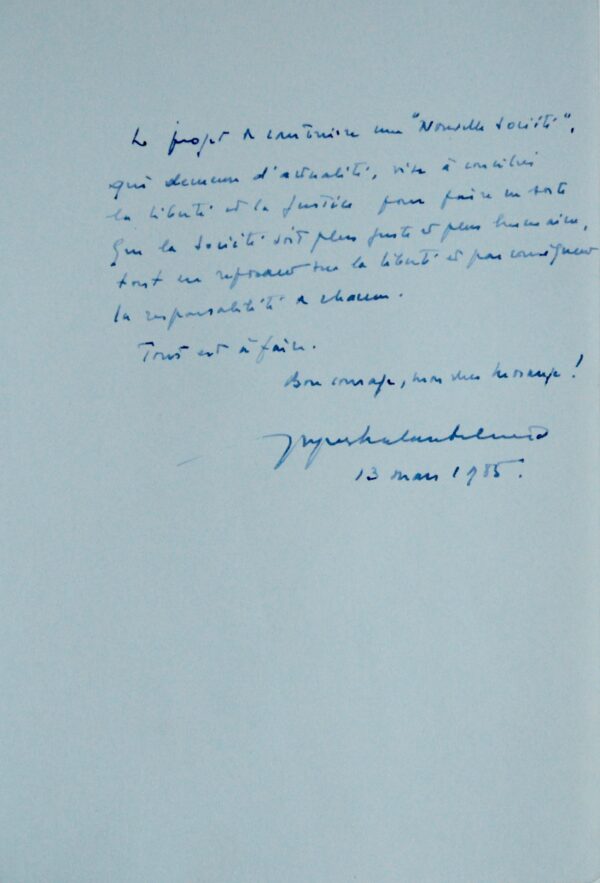 Le projet de construire une "Nouvelle Société",
qui demeure d'actualité, vise à concilier
la liberté et la justice pour faire en sorte
que la Société soit plus juste et plus humaine,
tout en reposant sur la liberté et par conséquent
la responsabilité de chacun.
Tout est à faire.
Bon courage, mon cher Morange !
13 mars 1985.